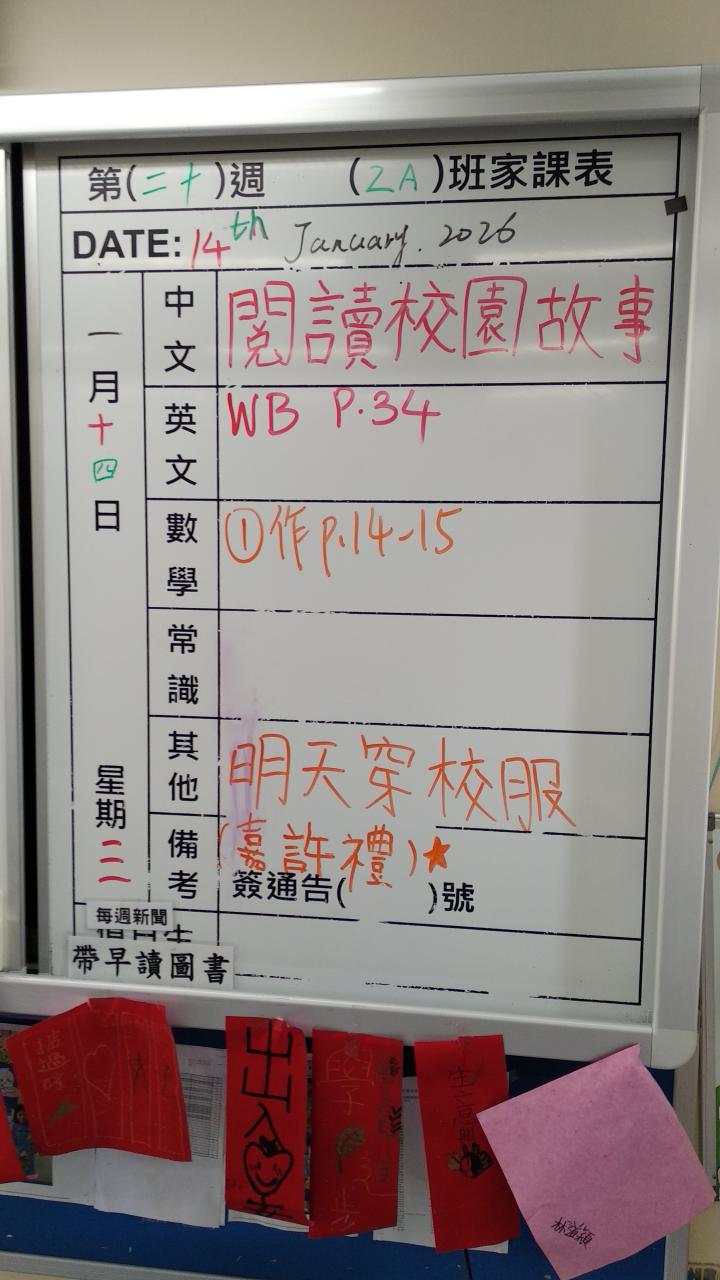 第(二十)週 (2A)班家課表
DATE: 14th January. 2026
一月十四日
星期三
中文
閱讀校園故事
英文
WB P.34
數學
①作p.14-15
常識
其他
明天穿校服
(嘉許禮)★
備考
簽通告( )號
每週新聞
帶早讀圖書
出入
學
進步
生意